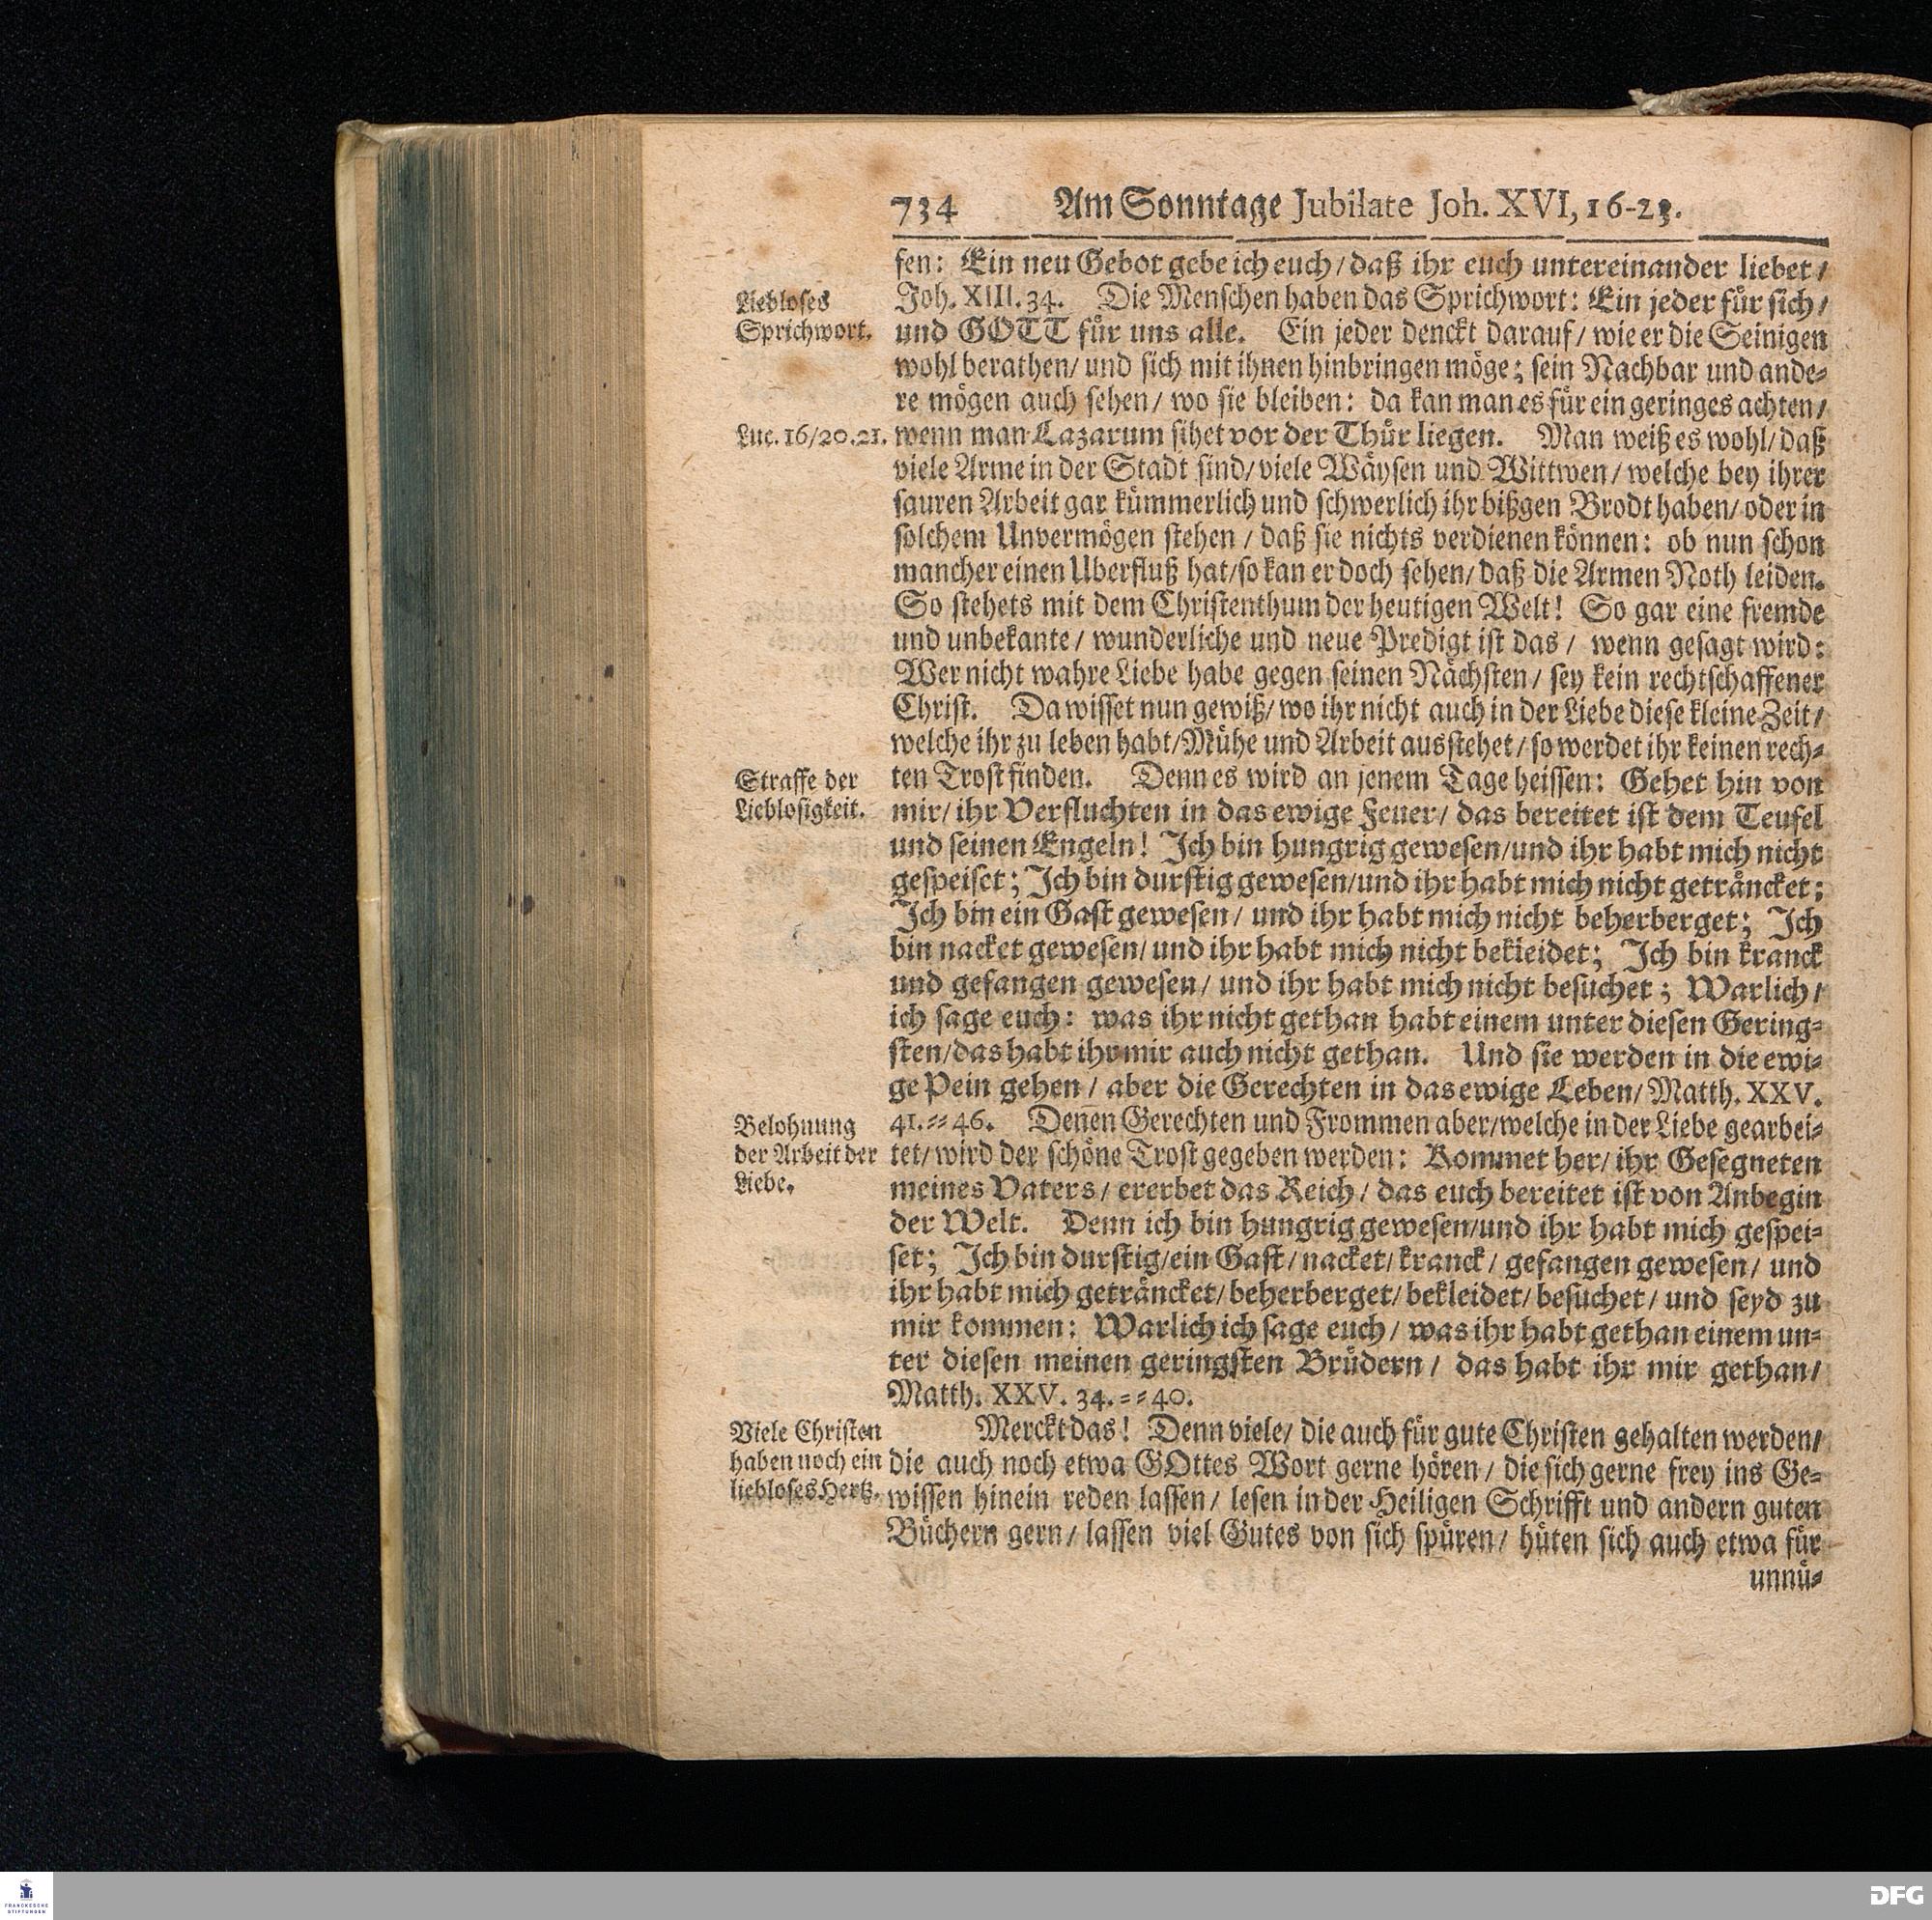 734 Am Sonntage Jubilate Joh. XVI, 16-23.
fen: Ein neu Gebot gebe ich euch/ daß ihr euch untereinander liebet/
Liebloses
Sprichwort.
Joh. XIII. 34. Die Menschen haben das Sprichwort: Ein jeder für sich/
und GOTT für uns alle. Ein jeder denckt darauf/ wie er die Seinigen
wohl berathen/ und sich mit ihnen hinbringen möge; sein Nachbar und ande-
re mögen auch sehen/ wo sie bleiben: da kan man es für ein geringes achten/
Luc. 16/20.21.
wenn man Lazarum sihet vor der Thür liegen. Man weiß es wohl/ daß
viele Arme in der Stadt sind/ viele Wäysen und Wittwen/ welche bey ihrer
sauren Arbeit gar kümmerlich und schwerlich ihr bißgen Brodt haben/ oder in
solchem Unvermögen stehen/ daß sie nichts verdienen können: ob nun schon
mancher einen Uberfluß hat/ so kan er doch sehen/ daß die Armen Noth leiden.
So stehets mit dem Christenthum der heutigen Welt! So gar eine fremde
und unbekante/ wunderliche und neue Predigt ist das/ wenn gesagt wird:
Wer nicht wahre Liebe habe gegen seinen Nächsten/ sey kein rechtschaffener
Christ. Da wisset nun gewiß/ wo ihr nicht auch in der Liebe diese kleine Zeit/
welche ihr zu leben habt/ Mühe und Arbeit ausstehet/ so werdet ihr keinen rech-
Straffe der
Lieblosigkeit.
ten Trost finden. Denn es wird an jenem Tage heissen: Gehet hin von
mir/ ihr Verfluchten in das ewige Feuer/ das bereitet ist dem Teufel
und seinen Engeln! Ich bin hungrig gewesen/ und ihr habt mich nicht
gespeiset; Ich bin durstig gewesen/ und ihr habt mich nicht geträncket;
Ich bin ein Gast gewesen/ und ihr habt mich nicht beherberget; Ich
bin nacket gewesen/ und ihr habt mich nicht bekleidet; Ich bin kranck
und gefangen gewesen/ und ihr habt mich nicht besuchet; Warlich/
ich sage euch: was ihr nicht gethan habt einem unter diesen Gering-
sten/ das habt ihr mir auch nicht gethan. Und sie werden in die ewi-
ge Pein gehen/ aber die Gerechten in das ewige Leben/ Matth. XXV.
Belohnung
der Arbeit der
Liebe.
41.-- 46. Denen Gerechten und Frommen aber/ welche in der Liebe gearbei-
tet/ wird der schöne Trost gegeben werden: Kommet her/ ihr Gesegneten
meines Vaters/ ererbet das Reich/ das euch bereitet ist von Anbegin
der Welt. Denn ich bin hungrig gewesen/ und ihr habt mich gespei-
set; Ich bin durstig/ ein Gast/ nacket/ kranck/ gefangen gewesen/ und
ihr habt mich geträncket/ beherberget/ bekleidet/ besuchet/ und seyd zu
mir kommen: Warlich ich sage euch/ was ihr habt gethan einem un-
ter diesen meinen geringsten Brüdern/ das habt ihr mir gethan/
Matth. XXV. 34.--40.
Viele Christen
haben noch ein
liebloses Hertz.
Merckt das! Denn viele/ die auch für gute Christen gehalten werden/
die auch noch etwa GOttes Wort gerne hören/ die sich gerne frey ins Ge-
wissen hinein reden lassen/ lesen in der Heiligen Schrifft und andern guten
Büchern gern/ lassen viel Gutes von sich spüren/ hüten sich auch etwa für
unnü-
FRANCKESCHE
STIFTUNGEN
DFG